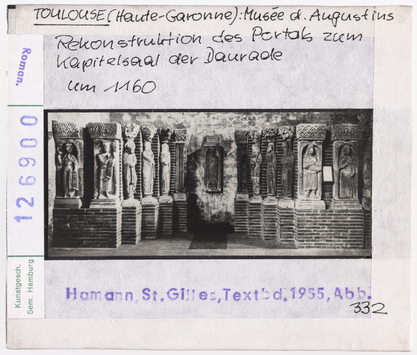 TOULOUSE (Haute-Garonne): Musée d. Augustins
Rekonstruktion des Portals zum
Kapitelsaal der Daurade
um 1160
Roman.
126900
Kunstgesch.
Sem. Hamburg
Hamann, St. Gilles, Textbd. 1955, Abb.
332